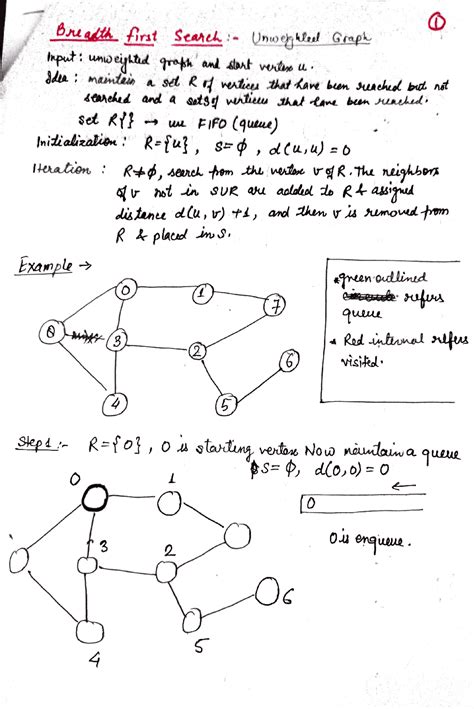 ①
Breadth first Search :- Unweighted Graph
Input : unweighted graph and start vertex u.
Idea : maintain a set R of vertices that have been reached but not
searched and a set S of vertices that have been reached.
set R{} → use FIFO (queue)
Initialization : R={u}, S=ϕ, d(u,u) = 0
Iteration : R≠ϕ, search from the vertex v of R. The neighbors
of v not in SUR are added to R & assigned
distance d(u,v) +1, and then v is removed from
R & placed in S.
Example →
0
1
7
8
3
2
6
4
5
green outlined
refers
queue
Red internal refers
visited.
Step 1 :- R={0}, 0 is starting vertex Now maintain a queue
S=ϕ, d(0,0) = 0
←
0
0 is enqueue.
0
1
3
2
6
5
4